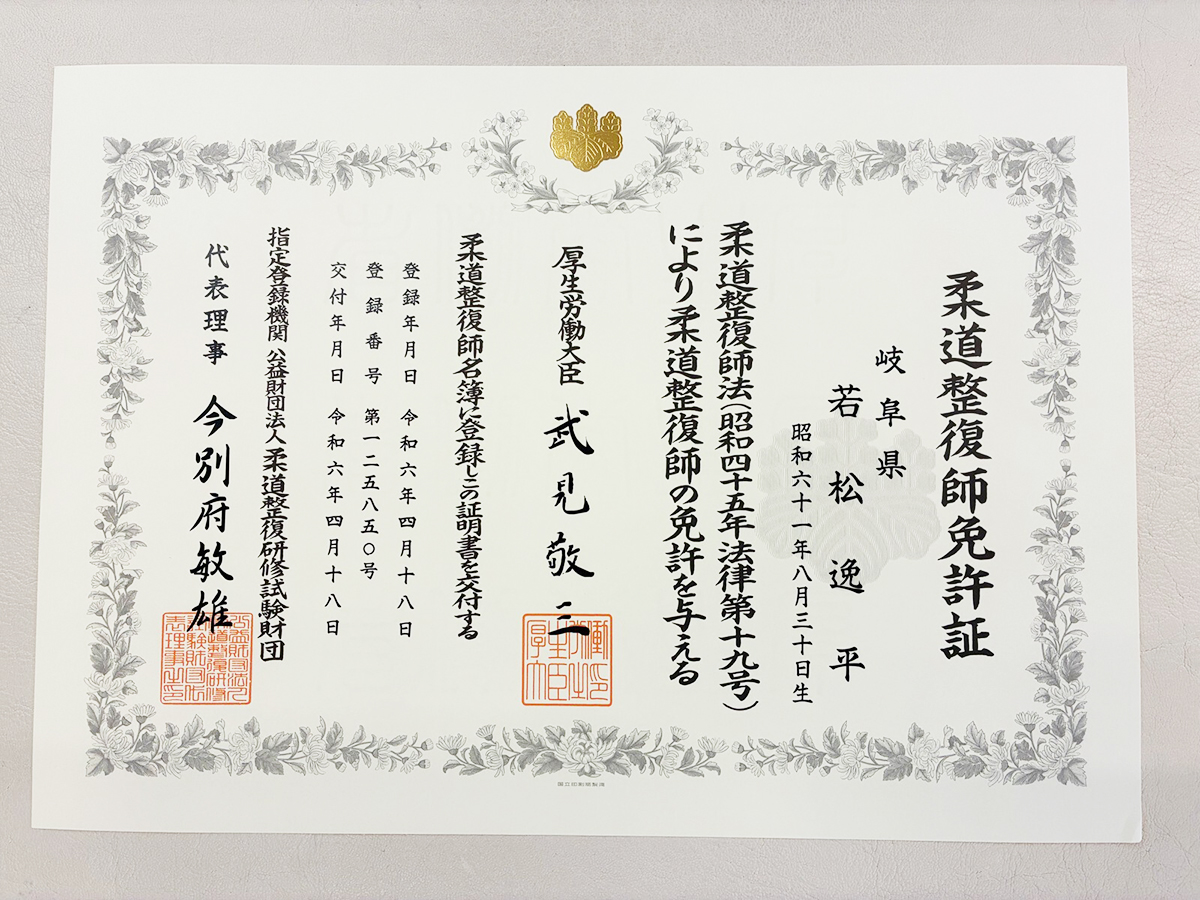 柔道整復師免許証
岐阜県
若松逸平
昭和六十一年八月三十日生
柔道整復師法(昭和四十五年法律第十九号)
により柔道整復師の免許を与える
厚生労働大臣 武見敬三
柔道整復師名簿に登録しこの証明書を交付する
登録年月日 令和六年四月十八日
登録番号 第一二五八五〇号
交付年月日 令和六年四月十八日
指定登録機関 公益財団法人柔道整復研修試験財団
代表理事 今別府敏雄
国立印刷局製造